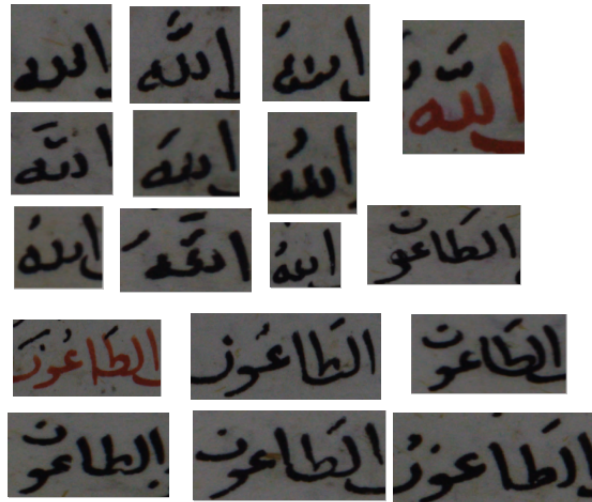 الله الله الله الله
الله الله الله
الطاعون الله الله الله
الطاعون الطاعون الطاعون
الطاعون الطاعون الطاعون